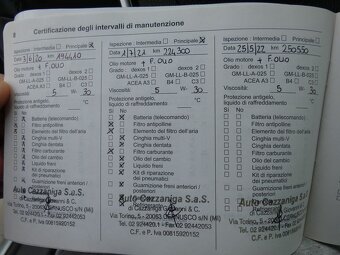 8
Certificazione degli intervalli di manutenzione
Ispezione : Intermedia Principale
Data 3/6/20 km
Olio motore + F.OLIO
Grado : dexos 1 dexos 2
GM-LL-A-025 GM-LL-B-025
ACEA A3 B4 C3
5 W- 30
Protezione antigelo,
liquido di raffreddamento °C
Batteria (telecomando)
Filtro antipolline
Elemento del filtro dell'aria
Cinghia multi-V
Cinghia dentata
Filtro carburante
Olio del cambio
Liquido freni
Kit di riparazione
dei pneumatici
Guarnizione freni anteriori /
posteriori
Auto Cazzaniga S.a.S.
Via Torino, 5 - 20063 CERNUSCO s/N (Mi)
C.F. e P. Iva 00815920152
Ispezione : Intermedia Principale
Data 1/7/21 km 224300
Olio motore + F.OLIO
Grado : dexos 1 dexos 2
GM-LL-A-025 GM-LL-B-025
ACEA A3 B4 C3
5 W- 30
Protezione antigelo,
liquido di raffreddamento °C
Batteria (telecomando)
Filtro antipolline
Elemento del filtro dell'aria
Cinghia multi-V
Cinghia dentata
Filtro carburante
Olio del cambio
Liquido freni
Kit di riparazione
dei pneumatici
Guarnizione freni anteriori /
posteriori
Auto Cazzaniga S.a.S.
di Cazzaniga Giovanni & C.
Via Torino, 5 - 20063 CERNUSCO s/N (Mi)
C.F. e P. Iva 00815920152
Ispezione : Intermedia Principale
Data 25/5/22 km 250550
Olio motore + F.OLIO
Grado : dexos 1 dexos 2
GM-LL-A-025 GM-LL-B-025
ACEA A3 B4 C3
5 W- 30
Protezione antigelo,
liquido di raffreddamento °C
Batteria (telecomando)
Filtro antipolline
Elemento del filtro dell'aria
Cinghia multi-V
Cinghia dentata
Filtro carburante
Olio del cambio
Liquido freni
Kit di riparazione
dei pneumatici
Guarnizione freni anteriori /
posteriori
Auto Cazzaniga S.a.S.
di Cazzaniga Giovanni & C.
Via Torino, 5 - 20063 CERNUSCO s/N (Mi)
C.F. e P. Iva 00815920152